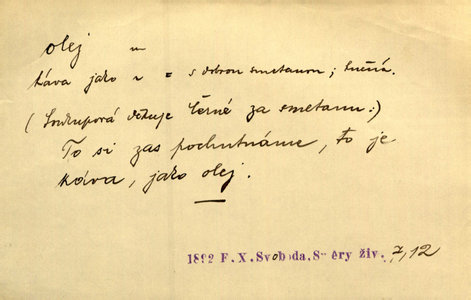 olej m
káva jako ~ = s dobrou smetanou; tučná.
(Soukupová děkuje Černé za smetanu:)
To si zas pochutnáme, to je
káva, jako olej.
1892 F. X. Svoboda, Směry živ. 7, 12